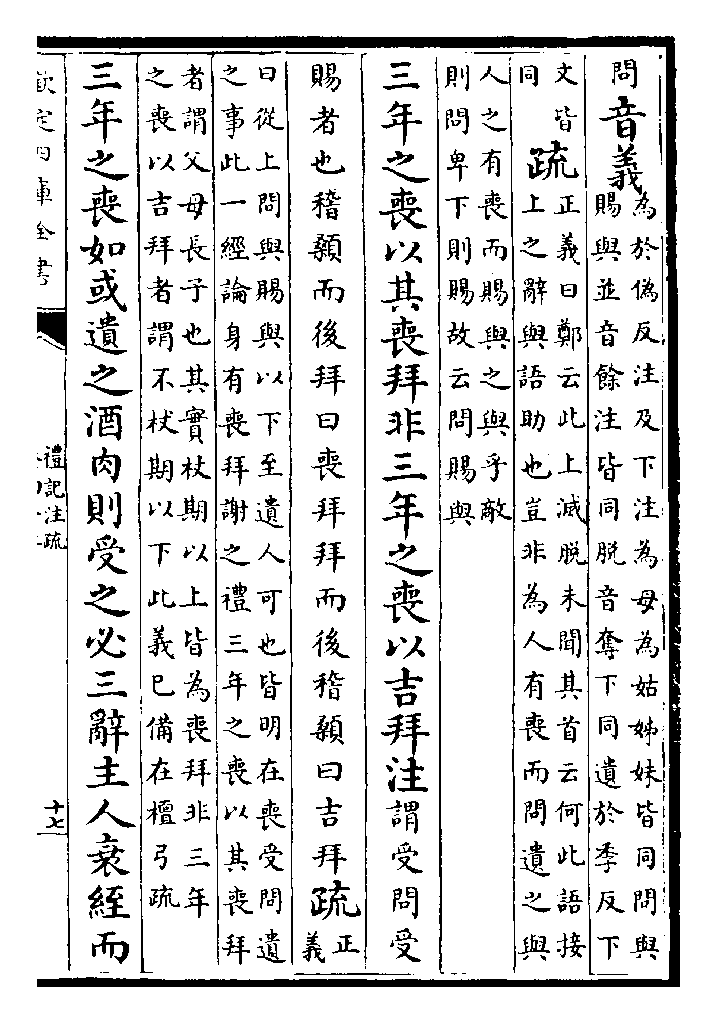 問音義為於偽反注及下注為母為姑姊妹皆同問與
賜與並音餘注皆同脱音奪下同遺於季反下
文皆同疏正義曰鄭云此上滅脱未聞其首云何此語接
上之辭與語助也豈非為人有喪而問遺之與
人之有喪而賜與之與乎敵
則問卑下則賜故云問賜與
三年之喪以其喪拜非三年之喪以吉拜注謂受問受
賜者也稽顙而後拜曰喪拜拜而後稽顙曰吉拜疏正義
曰從上問與賜與以下至遺人可也皆明在喪受問遺
之事此一經論身有喪拜謝之禮三年之喪以其喪拜
者謂父母長子也其實杖期以上皆為喪拜非三年
之喪以吉拜者謂不杖期以下此義已備在檀弓疏
三年之喪如或遺之酒肉則受之必三辭主人衰絰而
欽定四庫全書
禮記注疏
十七